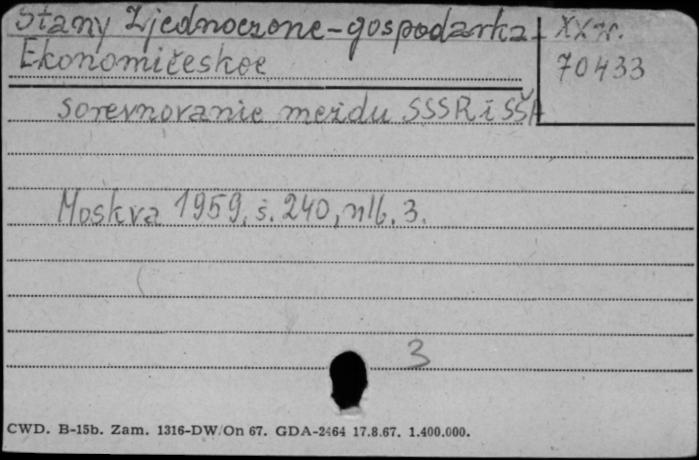 Stany Zjednoczone-gospodarka
XX w.
Ekonomičeskoe
70433
sorevnovanie meždu SSSR i SŠA
Moskva 1959, s. 240, nlb. 3.
3
CWD. B-15b. Zam. 1316-DW/On 67. GDA-2464 17.8.67. 1.400.000.